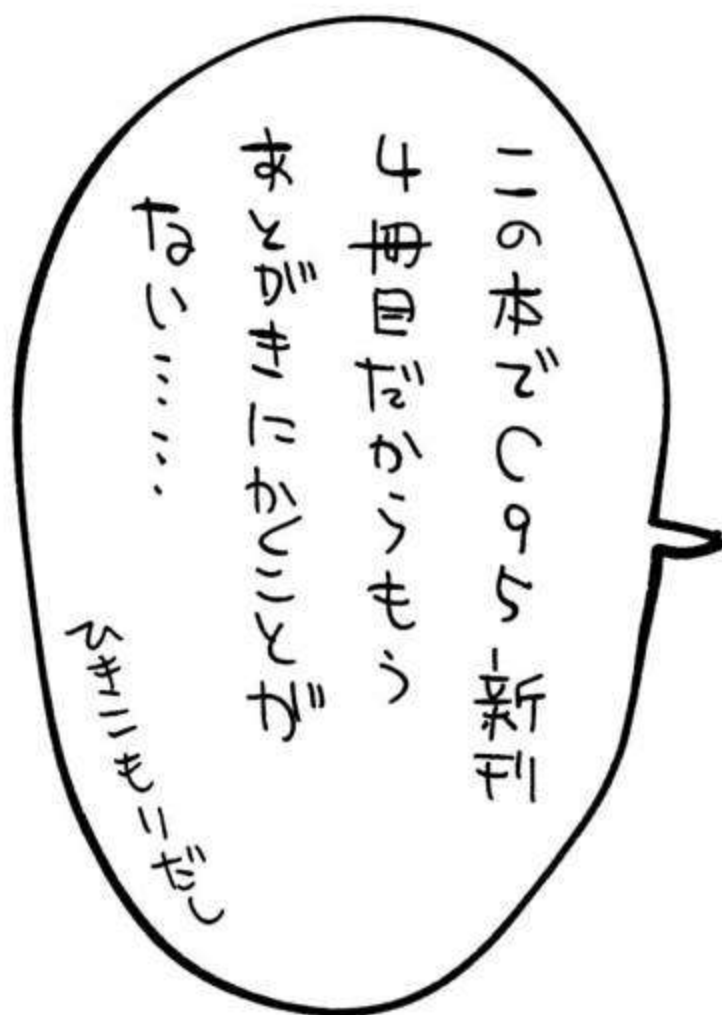 この本でC95新刊
4冊目だからもう
あとがきにかくことが
ない……
ひきこもりだし